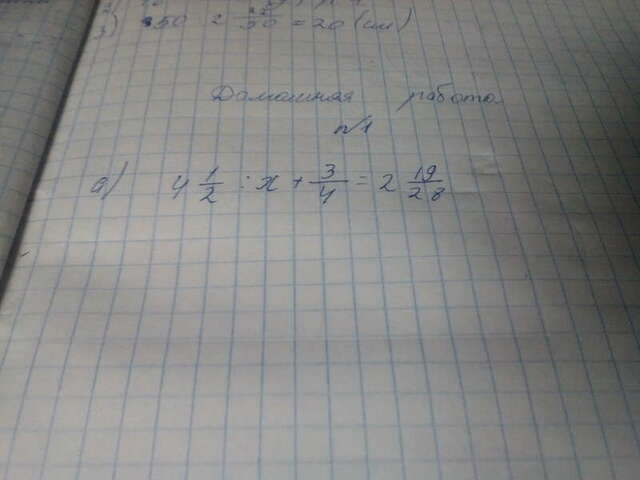 3) 50 2 25/50 = 20 (см)
Домашняя работа
№1
а) 4 1/2 : x + 3/4 = 2 19/28